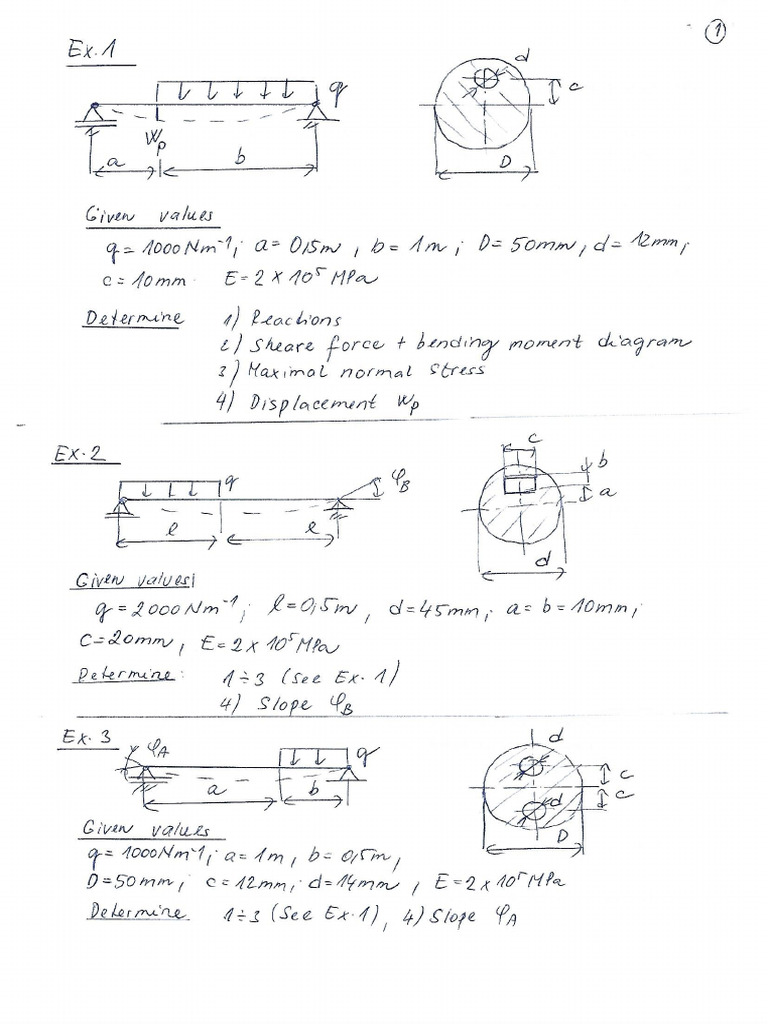 1
Ex. 1
d
q
c
Wp
a
b
D
Given values
q = 1000 Nm⁻¹; a = 0,5m, b = 1m; D = 50mm, d = 12mm;
c = 10mm E = 2 x 10⁵ MPa
Determine 1) Reactions
2) Sheare force + bending moment diagram
3) Maximal normal stress
4) Displacement wp
Ex. 2
c
q
φB
b
a
l
l
d
Given values
q = 2000 Nm⁻¹; l = 0,5m, d = 45mm; a = b = 10mm;
C = 20mm, E = 2 x 10⁵ MPa
Determine: 1÷3 (See Ex. 1)
4) Slope φB
Ex. 3
φA
q
d
c
c
a
b
d
D
Given values
q = 1000 Nm⁻¹; a = 1m, b = 0,5m,
D = 50mm; c = 12mm; d = 14mm, E = 2 x 10⁵ MPa
Determine 1÷3 (See Ex. 1), 4) Slope φA